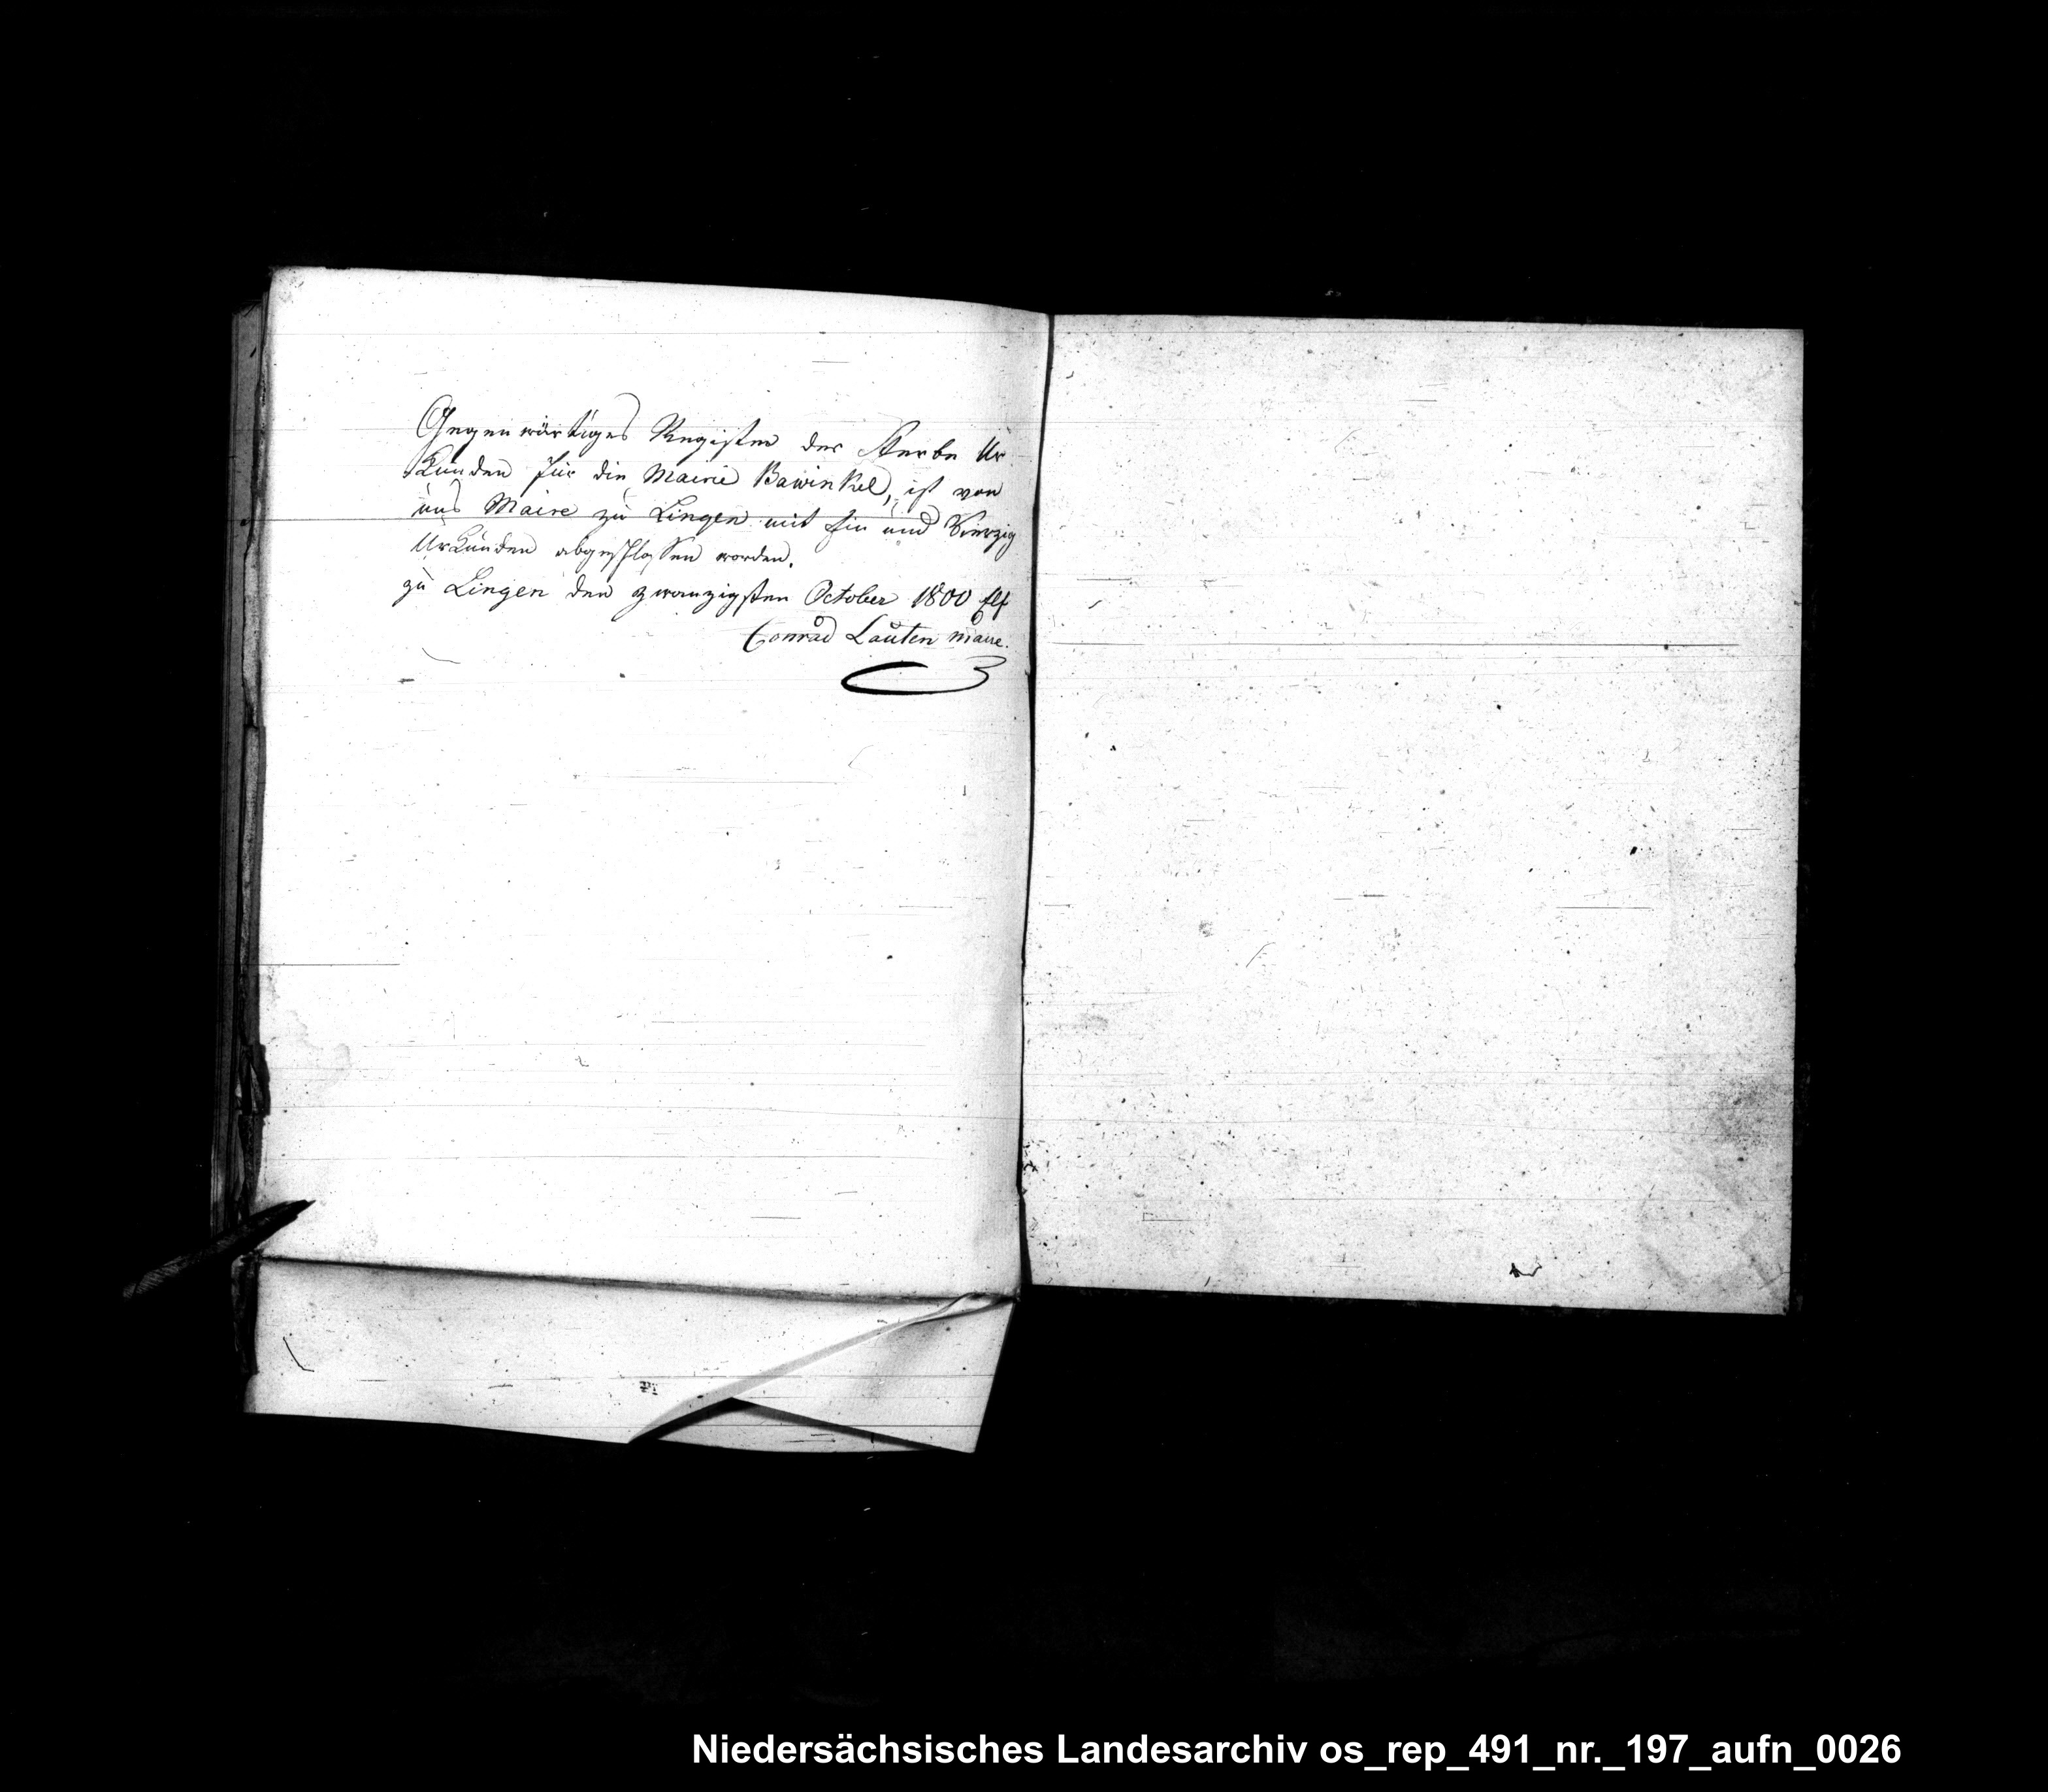 Gegenwärtiges Register der Sterbe Ur
Kunden für die Mairie Bawinkel, ist von
uns Maire zu Lingen mit Ein und Vierzig
UrKunden abgeschlossen worden.
zu Lingen den zwanzigsten October 1800 Elf
Conrad Lauten maire.
Niedersächsisches Landesarchiv os_rep_491_nr._197_aufn_0026